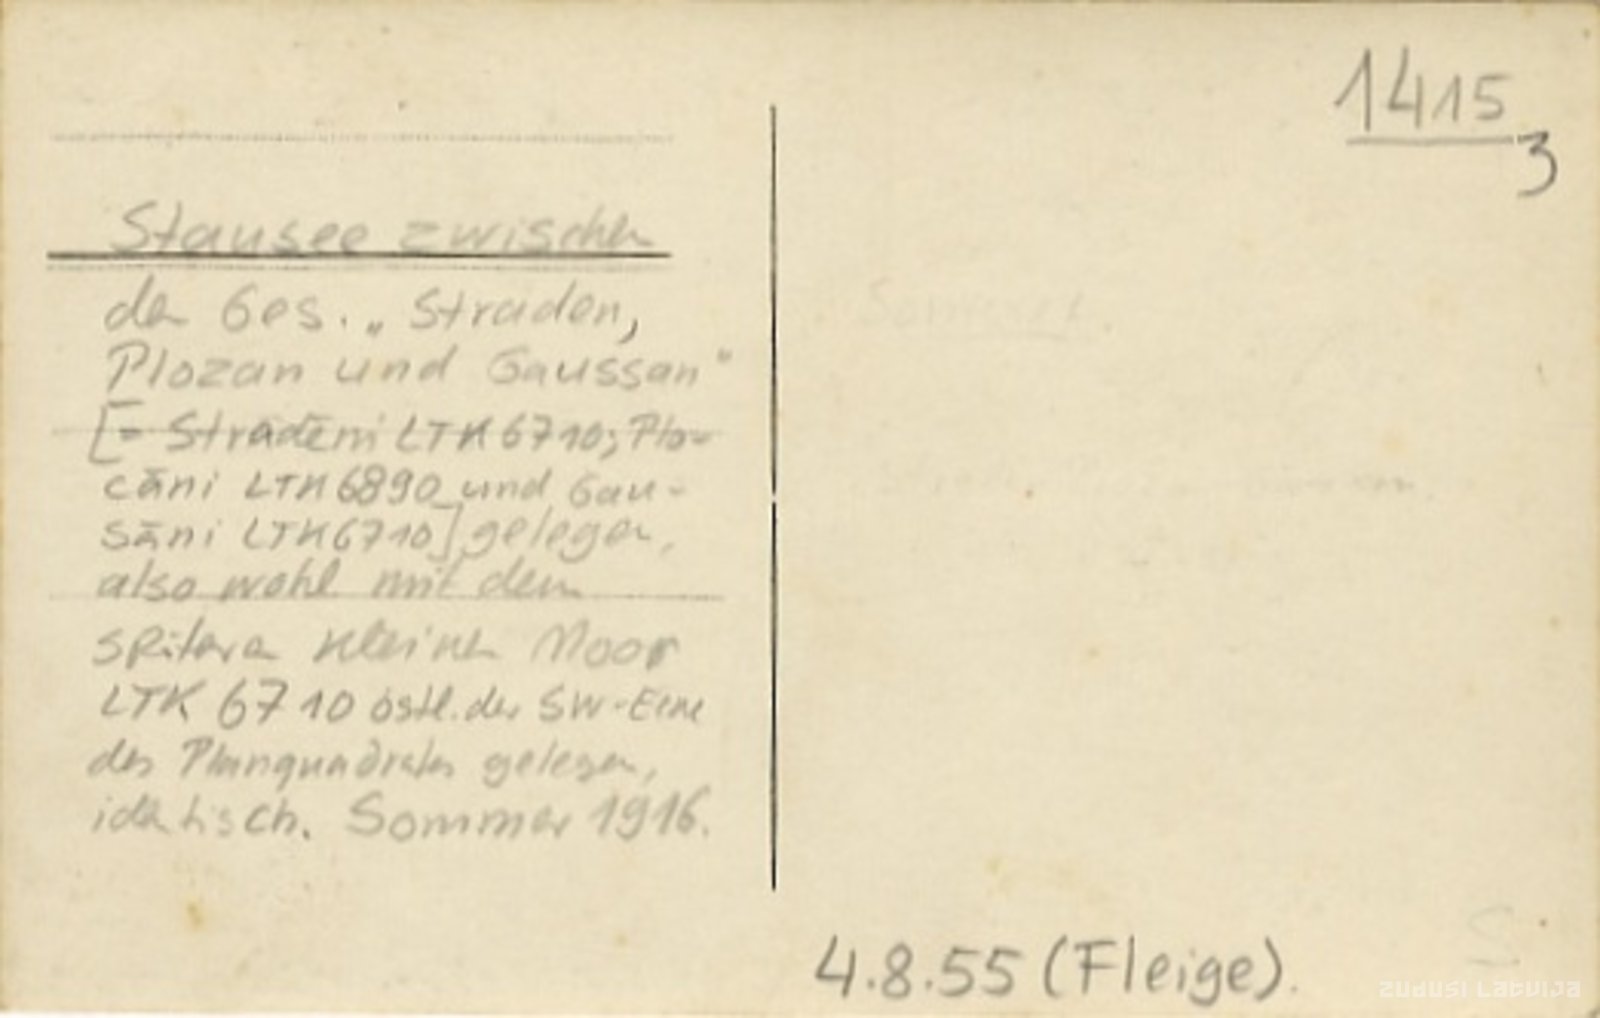 Stausee zwischen
den Ges. „Straden,
Plozan und Gaussan"
[= Stradēni LTK 6710; Plo-
cāni LTK 6890 und Gau-
sāni LTK 6710] gelegen,
also wohl mit dem
später kleinen Moor
LTK 6710 östl. der SW-Ecke
des Planquadrates gelegen,
identisch. Sommer 1916.
1415
3
4.8.55 (Fleige).
S
zudusi Latvija